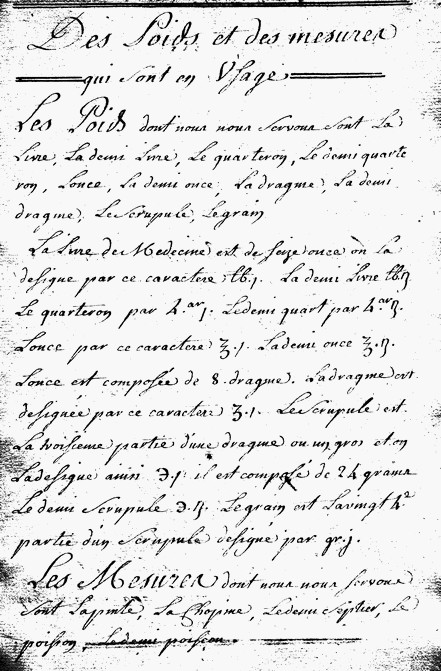 Des Poids et des mesures
qui sont en Usage
Les Poids dont nous nous servons sont La
Livre, La demi Livre, Le quarteron, Le demi quarte
ron, Lonce, La demi once, La dragme, La demi
dragme, Le Scrupule, Le grain
La Livre de Medecine est de seize once on la
desigue par ce caractere ℔.j. La demi Livre ℔.ß
Le quarteron par 4.ar j. Le demi quart par 4.ar ß.
Lonce par ce caractere ℥.j. La demi once ℥.ß.
Lonce est composée de 8. dragme. La dragme est
desiguée par ce caractere ʒ.j. Le Scrupule est
La troisieme partie d'une dragme ou un gros et on
La desigue ainsi ℈.j. il est composé de 24 grams
Le demi Scrupule ℈.ß. Le grain est La vingt 4e
partie d'un Scrupule desigué par gr.j.
Les Mesures dont nous nous servons
Sont La pinte, La Chopine, Le demi Septier, Le
poisson, Le demi poisson.